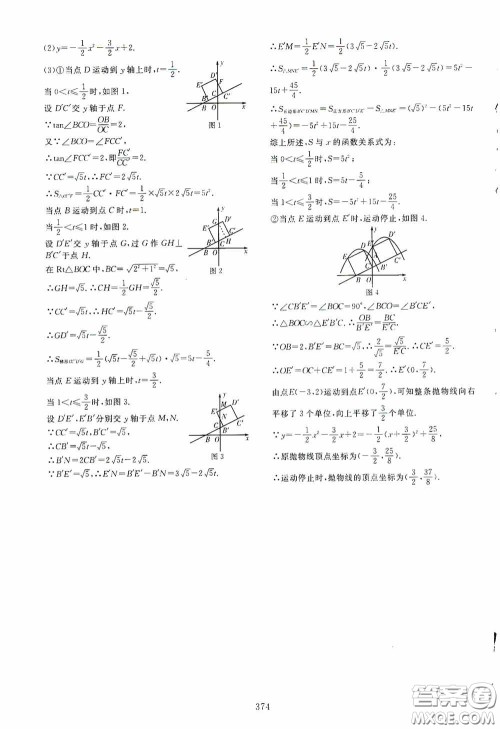 (2)y=-1/2x²-3/2x+2.
(3)①当点D运动到y轴上时,t=1/2.
当0<t≤1/2时,如图1.
设D′C′交y轴于点F.
∵tan∠BCO=OB/OC=2,
又∵∠BCO=∠FCC′,
∴tan∠FCC′=2,即FC′/CC′=2.
∵CC′=√5t,∴FC′=2√5t.
图1
当点B运动到点C时,t=1.
当1/2<t≤1时,如图2.
设D′E′交y轴于点G,过G作GH⊥
B′C′于点H.
在Rt△BOC中,BC=√(2²+1²)=√5.
∴GH=√5,∴CH=1/2GH=√5/2.
∵CC′=√5t,∴HC′=√5t-√5/2.
∴GD′=√5t-√5/2.
图2
当点E运动到y轴上时,t=3/2.
当1<t≤3/2时,如图3.
设D′E′,E′B′分别交y轴于点M,N.
∵CC′=√5t,B′C′=√5,
∴CB′=√5t-√5.
∴B′N=2CB′=2√5t-2√5.
∵B′E′=√5,∴E′N=B′E′-B′N=3√5-2√5t.
图3
∴E′M=1/2E′N=1/2(3√5-2√5t).
15t+45/4.
综上所述,S与x的函数关系式为:
当0<t≤1/2时,S=5t²;
当1/2<t≤1时,S=5t-5/4;
当1<t≤3/2时,S=-5t²+15t-25/4.
②当点E运动到点E′时,运动停止,如图4.
图4
∵∠CB′E′=∠BOC=90°,∠BCO=∠B′CE′,
∴△BOC∽△E′B′C.∴OB/B′E′=BC/E′C.
∵OB=2,B′E′=BC=√5,∴2/√5=√5/E′C.
∴E′C=5/2.
∴OE′=OC+CE′=1+5/2=7/2.∴E′(0,7/2).
由点E(-3,2)运动到点E′(0,7/2),可知整条抛物线向右
平移了3个单位,向上平移了3/2个单位.
∵y=-1/2x²-3/2x+2=-1/2(x+3/2)²+25/8,
∴原抛物线顶点坐标为(-3/2,25/8).
∴运动停止时,抛物线的顶点坐标为(3/2,37/8).
374
答案圈
MXQE.COM